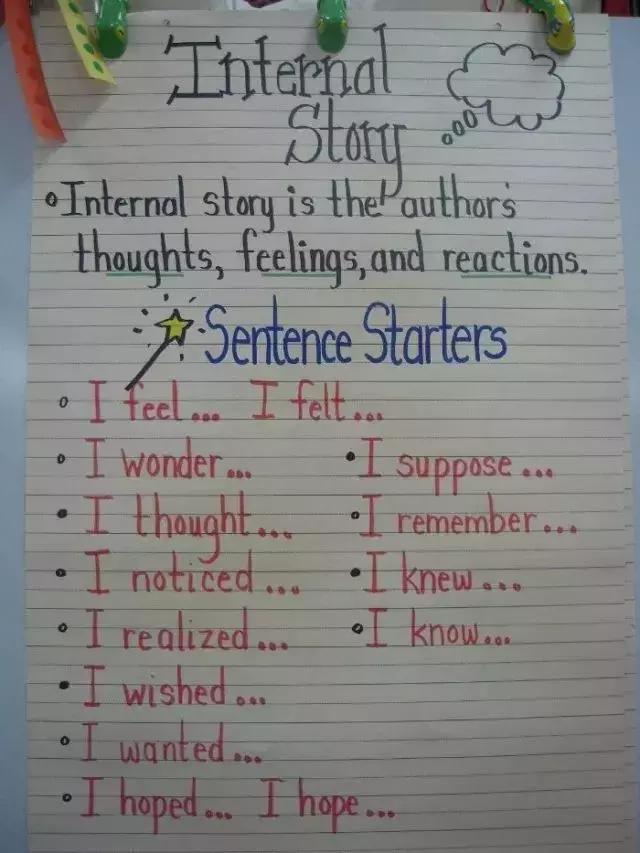 Internal
Story
Internal story is the author's
thoughts, feelings, and reactions.
Sentence Starters
I feel... I felt...
I wonder... I suppose...
I thought... I remember...
I noticed... I knew...
I realized... I know...
I wished...
I wanted...
I hoped... I hope...